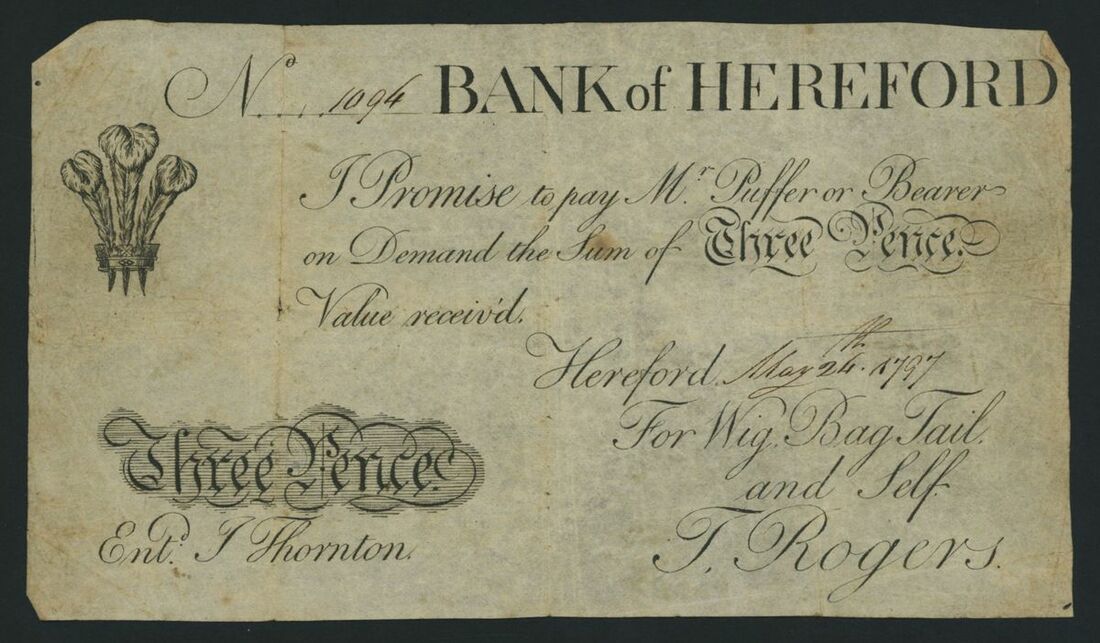 Nº 1094 BANK of HEREFORD
I Promise to pay Mr. Puffer or Bearer
on Demand the Sum of Three Pence.
Value receiv'd.
Hereford. May 24th. 1797
For Wig. Bag Tail.
and Self.
T. Rogers.
Three Pence.
Entd. J Thornton.